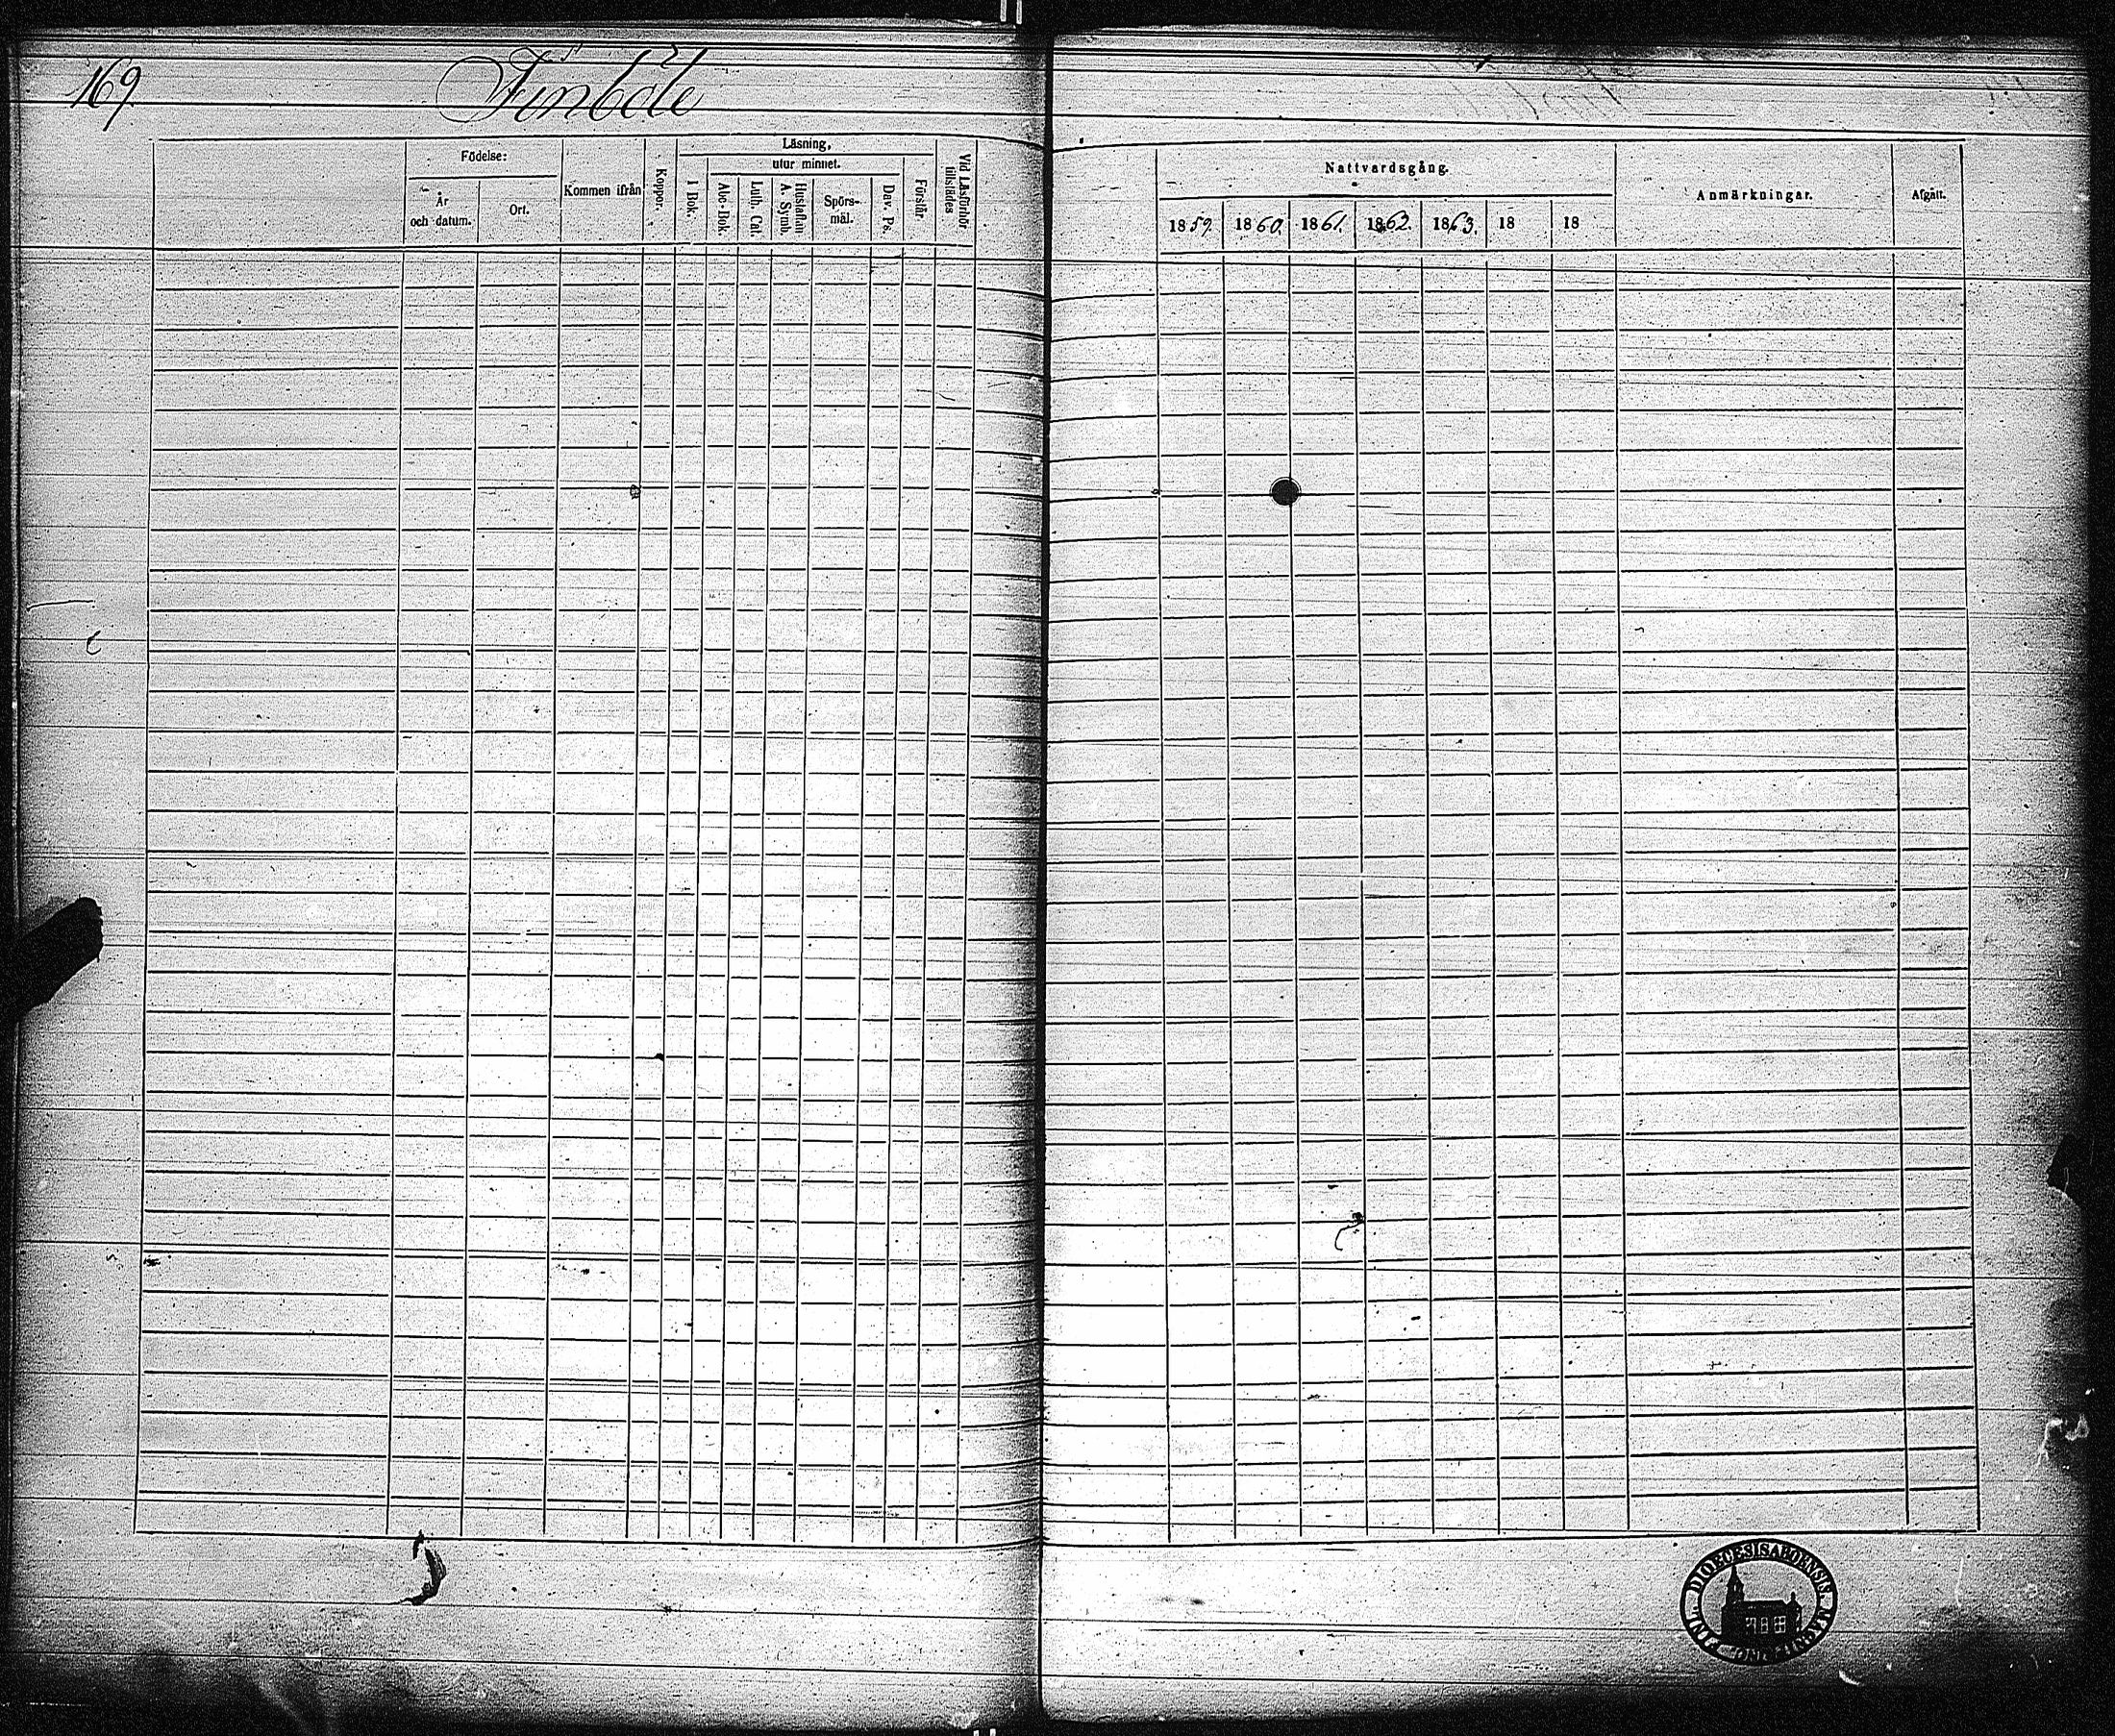 169.
Finböle
Födelse:
År
och datum.
Ort.
Kommen ifrån
Koppor.
Läsning,
utur minnet.
I Bok.
Abc-Bok.
Luth. Cat.
Hustaflan
A. Symb.
Spörs-
mål.
Dav. Ps.
Förstår
Vid Läsförhör
tillstädes
Nattvardsgång.
1859. 1860. 1861. 1862. 1863. 18 18
Anmärkningar.
Afgått.
DIOECESIS ABOENSIS. MAGNI
FINL.